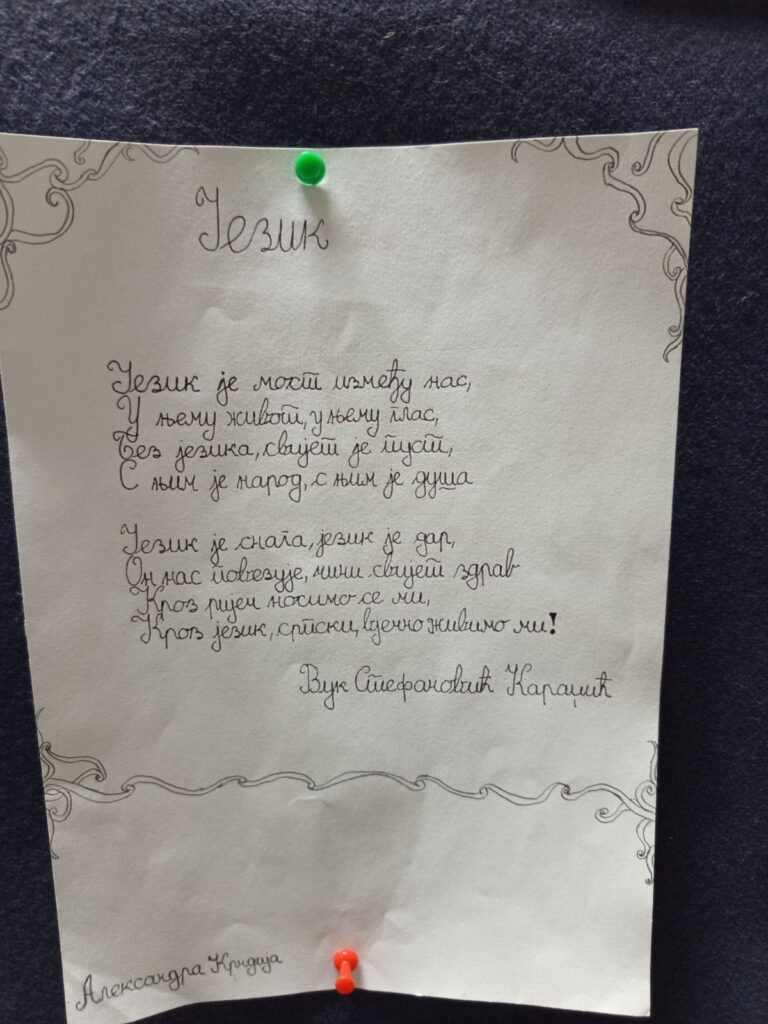 Језик
Језик је мост између нас,
У њему живот, у њему глас,
Без језика, свијет је пуст,
С њим је народ, с њим је душа
Језик је снага, језик је дар,
Он нас повезује, чини свијет здрав
Кроз ријеч носимо се ми,
Кроз језик, српски, вјечно живимо ми!
Вук Стефановић Караџић
Александра